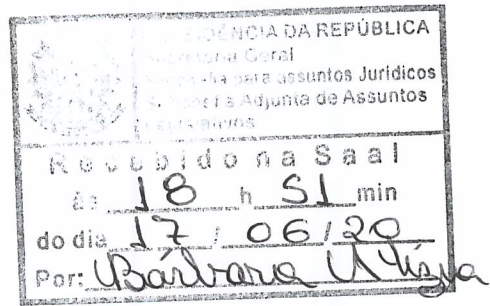 DA REPÚBLICA
Geral
para assuntos Jurídicos
Adjunta de Assuntos
Recebido na Saal
às 18 h 51 min
do dia 17 / 06 / 20
Por: Bárbara